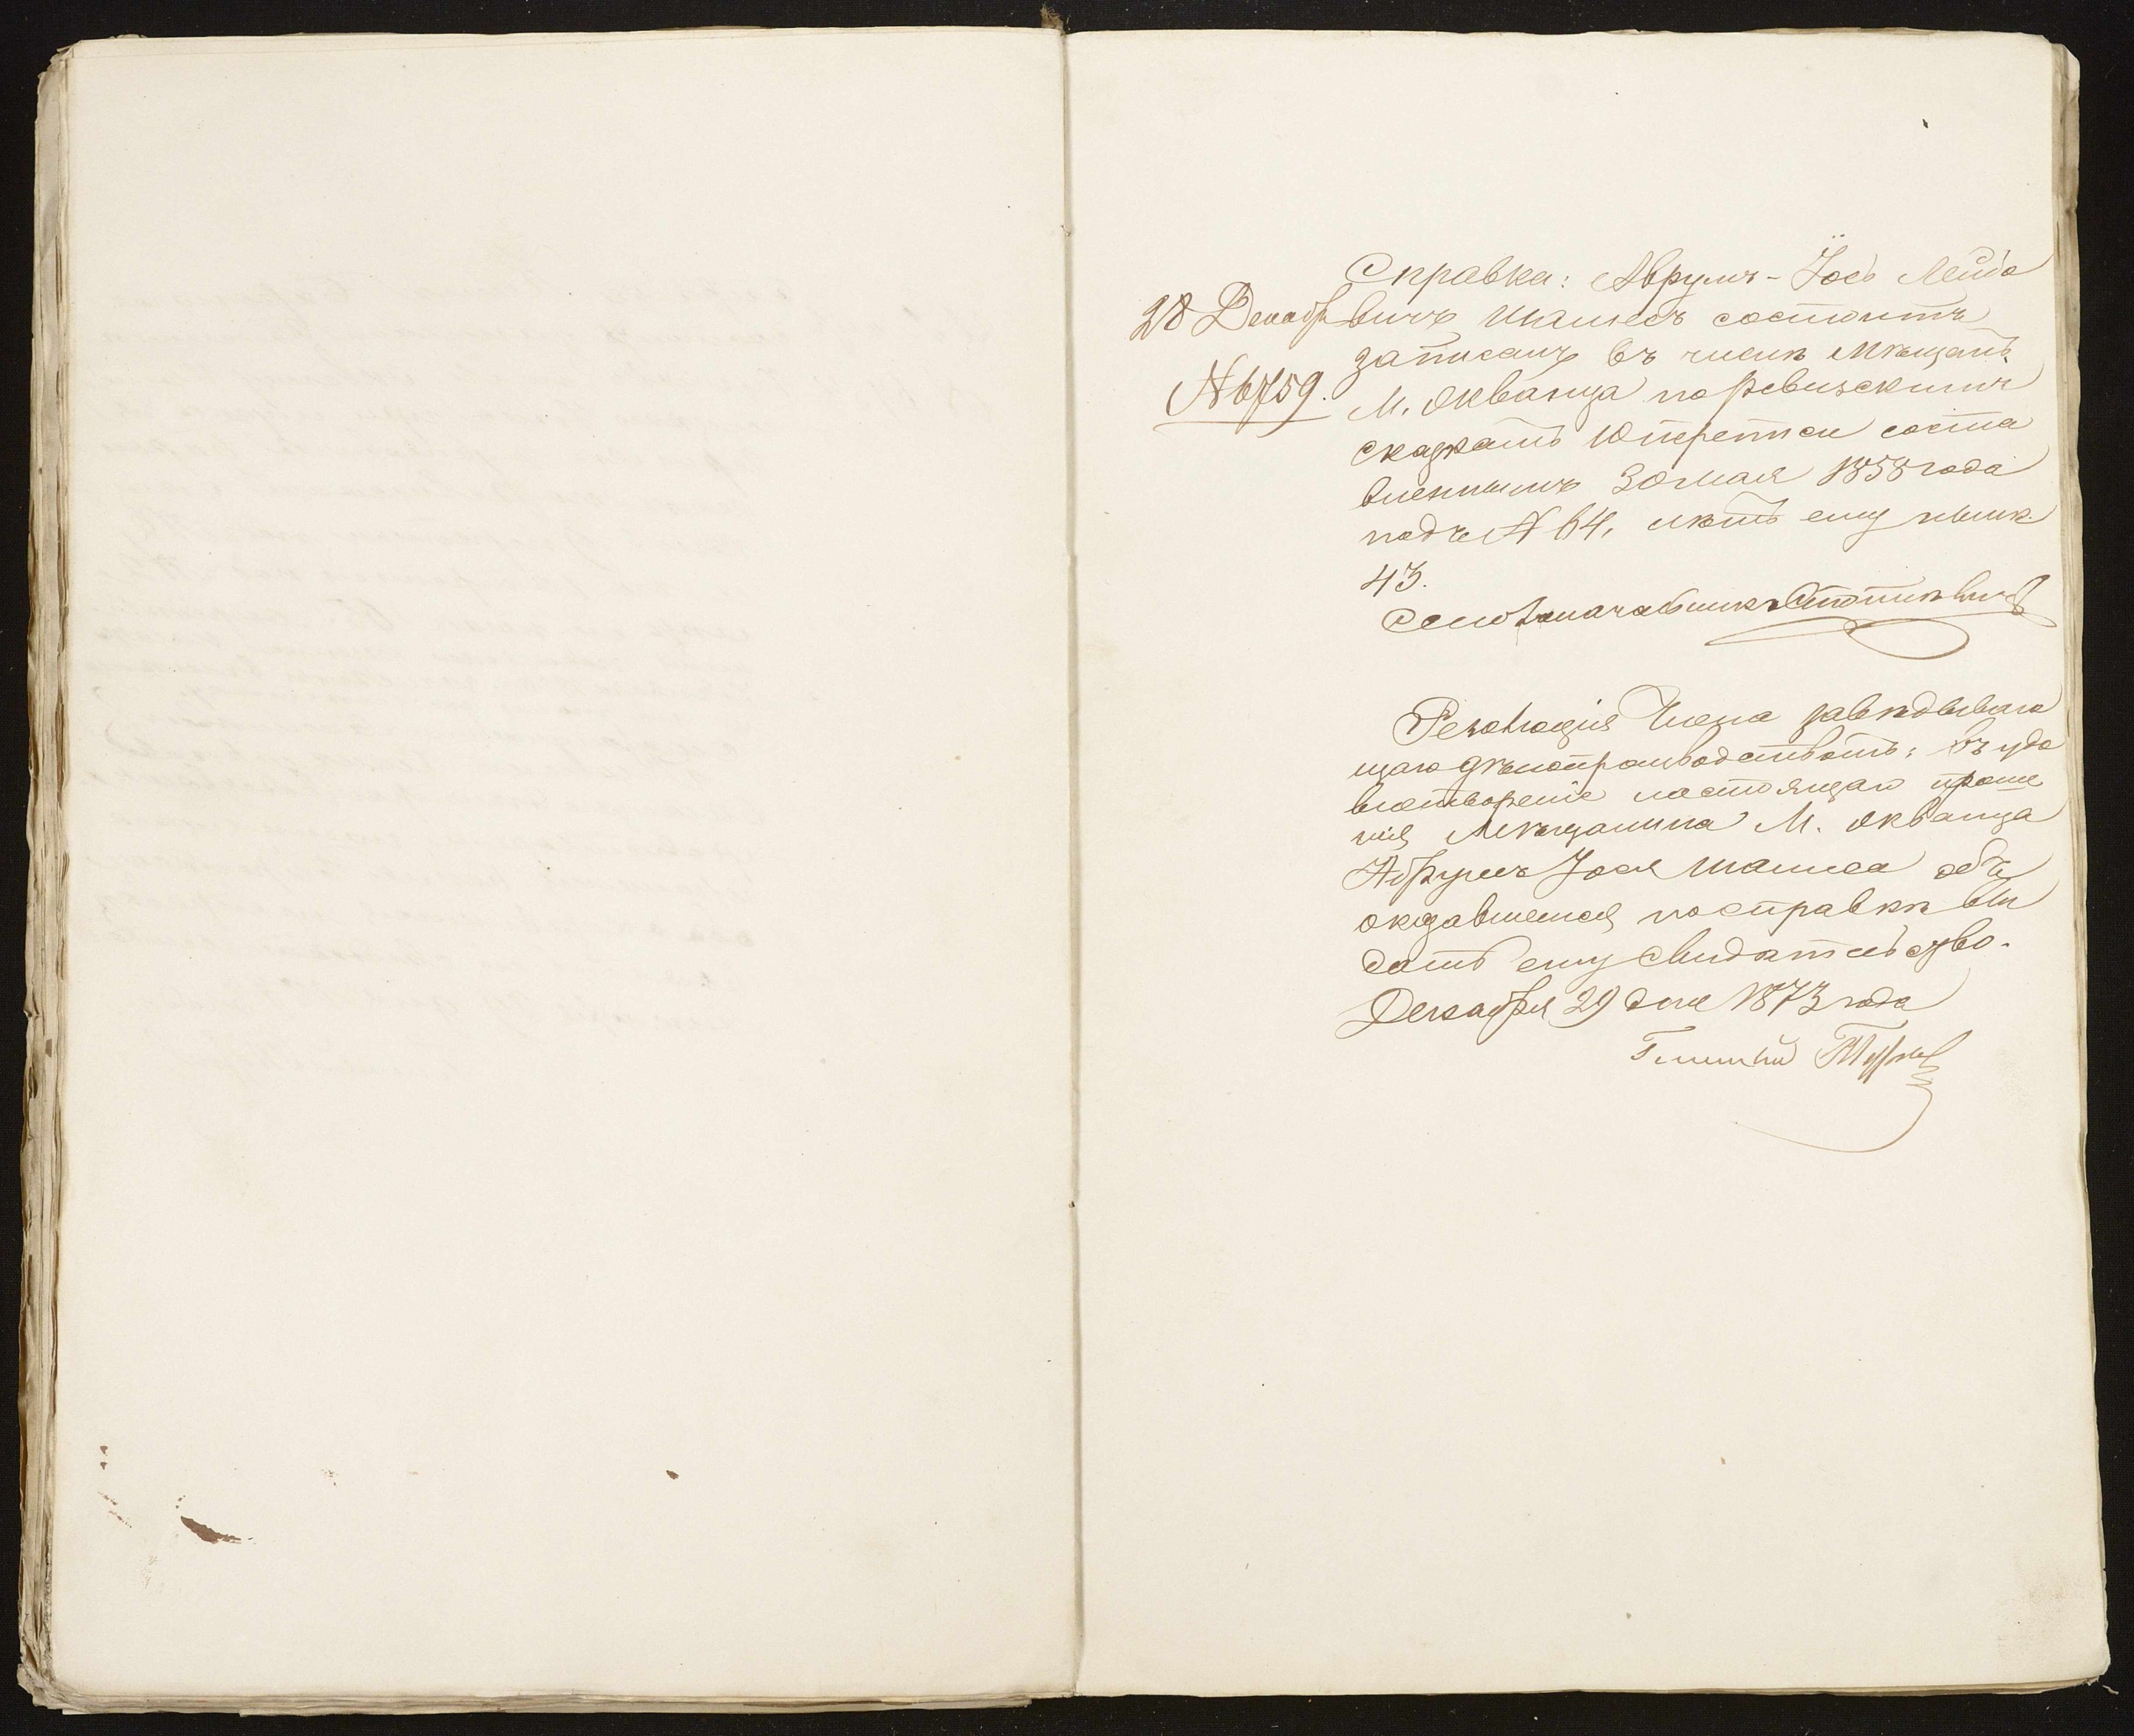 Справка: Аврумъ-Iось Лейбо
28 Декабр вичъ Шамесъ состоитъ
записанъ въ числѣ Мѣщанъ
№ 6759. М. Жванца по Ревизскимъ
сказкамъ 10 переписи соста
вленнымъ 30 мая 1858 года
подъ № 64, лѣтъ ему нынѣ
43.
Столоначальникъ
Резолюція Члена завѣдывающа
щаго дѣлопроизводствомъ: въ удо
влетвореніе настоящаго проше
нія Мѣщанина М. Жванца
Абрумъ Iося Шамеса объ
оказавшемся по справкѣ вы
дать ему свидѣтельство.
Декабря 29 дня 1873 года